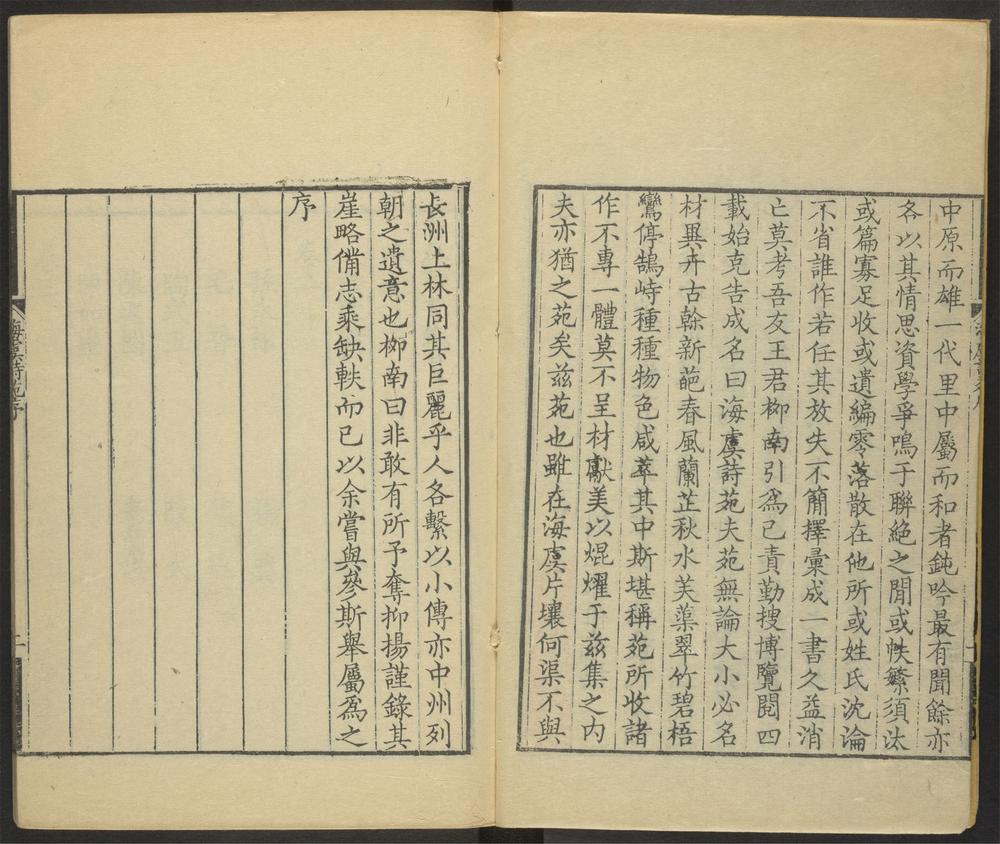 中原而雄一代里中屬而和者鈍吟最有聞餘亦
各以其情思資學爭鳴于聯絶之間或帙繁須汰
或篇寡足收或遺編零落散在他所或姓氏沈論
不省誰作若任其放失不簡擇彙成一書久益消
亡莫考吾友王君栁南引爲己責勤搜博覽閱四
載始克告成名曰海虞詩苑夫苑無論大小必名
材異卉古榦新葩春風蘭芷秋水芙蕖翠竹碧梧
鸞停鵠峙種種物色咸萃其中斯堪稱苑所收諸
作不專一體莫不呈材獻美以焜燿于兹集之内
夫亦猶之苑矣兹苑也雖在海虞片壤何渠不與
長洲上林同其巨麗乎人各繫以小傳亦中州列
朝之遺意也栁南曰非敢有所予奪抑揚謹錄其
崖略備志乘缺軼而已以余嘗與參斯舉屬爲之
序
海虞詩苑序
二